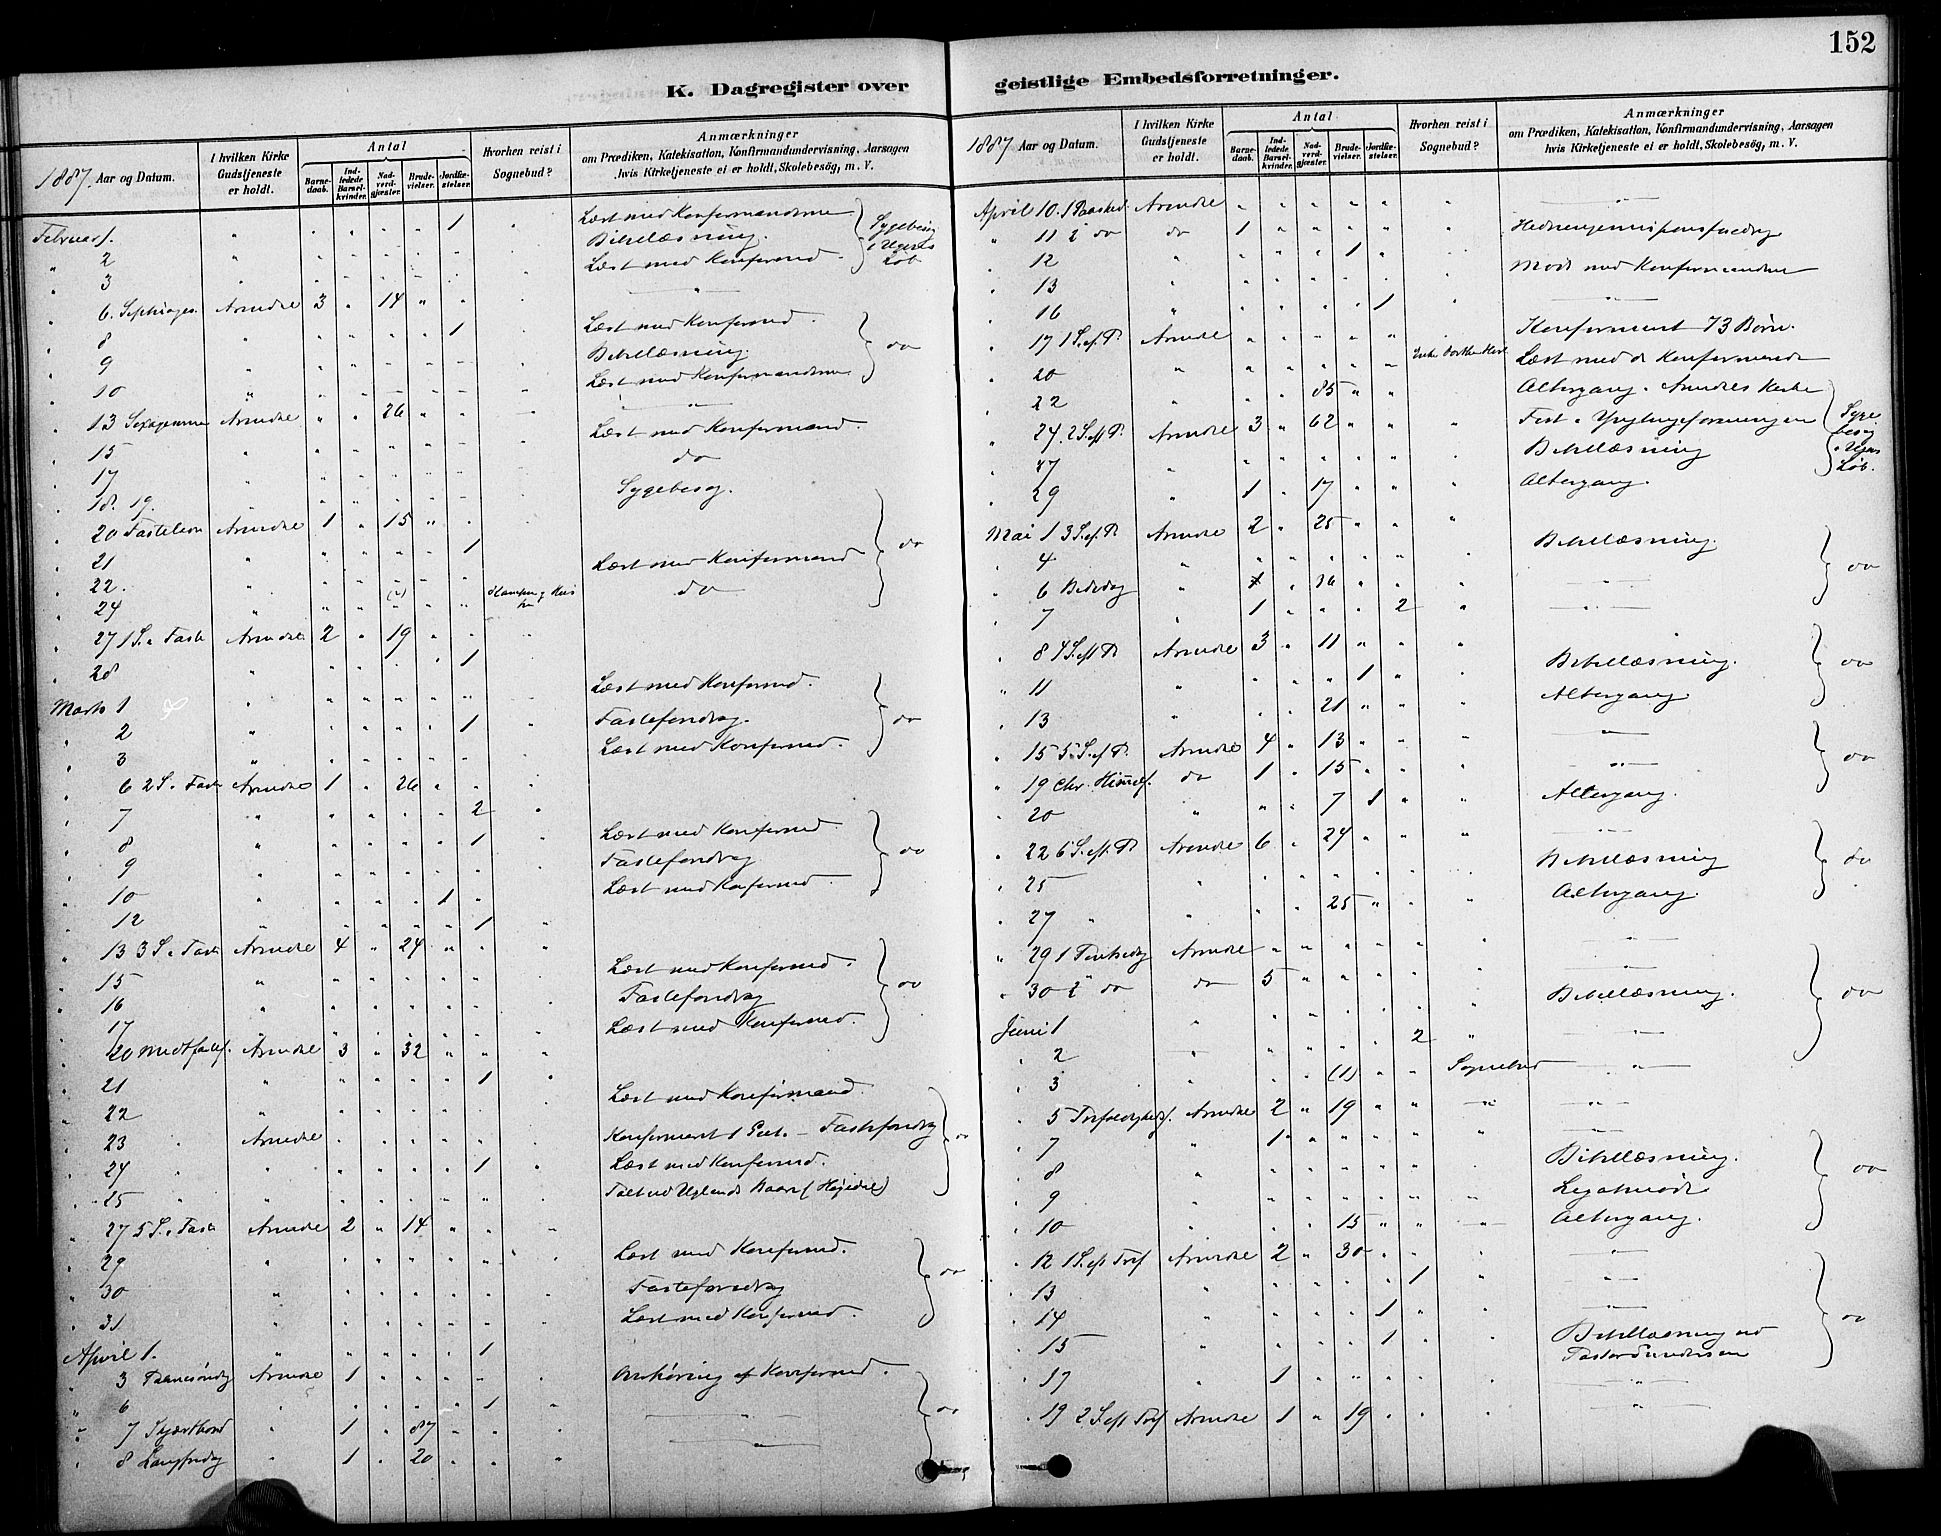 152
K. Dagregister over
1887. Aar og Datum.
I hvilken Kirke Gudstjeneste er holdt.
Antal
Barnedaab.
Indledede Barselkvinder.
Nadverdgjæster.
Brudevielser.
Jordfæstelser.
Hvorhen reist i Sognebud?
Anmærkninger
om Prædiken, Katekisation, Konfirmandundervisning, Aarsagen
hvis Kirketjeneste ei er holdt, Skolebesøg, m. V.
Februar 1. " " " " " 1 " Læst med Konfirmanderne
" 2 " " " " " " Bibellæsning. Sygebesøg i Ugens Løb
" 3 " " " " " " Læst med Konfirmd.
" 6. Septuages. Arendal 3 " 14 " " "
" 8 " " " " " 1 Læst med Konfirmd.
" 9 " " " " " Bibellæsning. do
" 10 " " " " " Læst med Konfirmanderne
" 13 Sexagesima Arendal " " 26 " " "
" 15 " " " " " Læst med Konfirmand.
" 17 " " " " " do
" 18. 19. " " " " Sygebesøg.
" 20 Fastelavn Arendal 1 " 15 " "
" 21 " " " " " 1
" 22. " " " " " Læst med Konfirmand do
" 24 " " " (2) " " do
" 27 1 S. i Faste Arendal 2 " 19 " "
" 28 " " " " " 1
Marts 1 " " " " " Læst med Konfirmd.
" 2 " " " " " 1 Fasteforedrag. do
" 3 " " " " " Læst med Konfirmd.
" 6 2 S. i Faste Arendal 1 " 26 " "
" 7 " " " " " 2 "
" 8 " " " " " 1 " Læst med Konfirmd.
" 9 " " " " " Fasteforedrag do
" 10 " " " " 1 " Læst med Konfirmd.
" 12 " " " " " 1 "
" 13 3 S. i Faste Arendal 4 " 24 " " "
" 15 " " " " " Læst med Konfirmd.
" 16 " " " " " " Fasteforedrag do
" 17 " " " " " Læst med Konfirmd.
" 20 Midtfaste. Arendal 3 " 32 " " "
" 21 " " " " " 1 "
" 22 " " " " " Læst med Konfirmand.
" 23 " Arendal " " " " " Konfirmeret 1 – Fasteforedrag do
" 24 " " " " " " 1 " Læst med Konfirmd.
" 25 " " " " " " "
" 27 5 S. i Faste Arendal 2 " 14 " " "
" 29 " " " " " " Læst med Konfirmd.
" 30 " " " " " Fasteforedrag do
" 31 " " " " " Læst med Konfirmd.
April 1. " " " " " 1
" 3 Palmesøndag Arendal 1 " " " " Overhøring af Konfirmd.
" 6 " " " " " 1 "
" 7 Skjærthorsd " 1 " 87 " " do
" 8 Langfredag " 1 " 20 " " "
geistlige Embedsforretninger.
1887. Aar og Datum.
I hvilken Kirke Gudstjeneste er holdt.
Antal
Barnedaab.
Indledede Barselkvinder.
Nadverdgjæster.
Brudevielser.
Jordfæstelser.
Hvorhen reist i Sognebud?
Anmærkninger
om Prædiken, Katekisation, Konfirmandundervisning, Aarsagen
hvis Kirketjeneste ei er holdt, Skolebesøg, m. V.
April 10. 1 Paasked. Arendal " " " " " " "
" 11 2 do do 1 " " " " " Hedningemissionsforedrag
" 12 " " " " 1 " "
" 13 " Møde med Konfirmanderne
" 16 " " " " " 1 " "
" 17 1 S. ef. P. Arendal " " " " " Konfirmeret 73 Børn.
" 20 " " " " " " Læst med de Konfirmerede
" 22 " " 85 " " Altergang i Arendals Kirke
" 24. 2 S. eft P. Arendal 3 " 62 " " " Fest i Ynglingeforeningen Sygebesøg i Ugens Løb.
" 27 " " " " " " " Bibellæsning
" 29 " 1 " 17 " " " Altergang.
Mai 1 3 S. ef. P. Arendal 2 " 25 " " "
" 4 " " " " " " " Bibellæsning.
" 6 Bededag " " 36 " " " do
" 7 " 1 " " " 2 "
" 8 4 S. eft P. Arendal 3 " 11 " " "
" 11 " " " " 1 " " Bibellæsning. do
" 13 " " " 21 " " " Altergang
" 15 5 S. ef P. Arendal 4 " 13 " " "
" 19 Chr. Himmelf. do 1 " 15 " " " do
" 20 " " " 7 1 " " Altergang.
" 22 6 S. eft. P. Arendal 6 " 24 " " "
" 25 " " " " " " Bibellæsning do
" 27 " " " " 25 " " " Altergang.
" 29 1 Pintsedag Arendal " " " " " "
" 30 2 do do 5 " " " " "
Juni 1 " " " " " " " Bibellæsning. do
" 2 " " " " " 2 " "
" 3 " " " (1) " " Sognebud "
" 5 Trefoldighedsf. Arendal 2 " 19 " " "
" 7 " 1 " " " " "
" 8 " " " " " " Bibellæsning.
" 9 " " " " " " " Legatmøde do
" 10 " " " 15 " " " Altergang.
" 12 1 S. eft Tref Arendal 2 " 30 " " "
" 13 " " " " " 1 " "
" 14 " " " " 1 " " "
" 15 " " " " 1 " " Bibellæsning ved Pastor do
" 17 " 1 " " " " "
" 19 2 S. eft Tref Arendal 1 " 19 " " " "